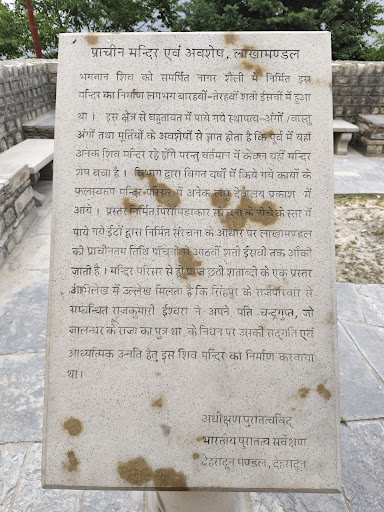 प्राचीन मन्दिर एवं अवशेष, लाखामण्डल
भगवान शिव को समर्पित नागर शैली में निर्मित इस
मन्दिर का निर्माण लगभग बारहवीं-तेरहवीं शती ईसवीं में हुआ
था। इस क्षेत्र से बहुतायत में पाये गये स्थापत्य-अंगों/वास्तु
अंगों तथा मूर्तियों के अवशेषों से ज्ञात होता है कि पूर्व में यहाँ
अनेक शिव मन्दिर रहे होंगे परन्तु वर्तमान में केवल यही मन्दिर
शेष बचा है। विभाग द्वारा विगत वर्षों में किये गये कार्यों के
फलस्वरूप मन्दिर परिसर में अनेक लघु देवालय प्रकाश में
आये। प्रस्तर निर्मित पिरामिडाकार संरचना के नीचे के स्तर में
पाये गये ईंटों द्वारा निर्मित संरचना के आधार पर लाखामण्डल
की प्राचीनतम तिथि पाँचवीं से आठवीं शती ईसवीं तक आँकी
जाती है। मन्दिर परिसर से ही प्राप्त छठी शताब्दी के एक प्रस्तर
अभिलेख में उल्लेख मिलता है कि सिंहपुर के राजपरिवार से
सम्बन्धित राजकुमारी ईश्वरा ने अपने पति चन्द्रगुप्त, जो
जालन्धर के राजा का पुत्र था, के निधन पर उसकी सद्गति एवं
आध्यात्मिक उन्नति हेतु इस शिव मन्दिर का निर्माण करवाया
था।
अधीक्षण पुरातत्वविद्
भारतीय पुरातत्व सर्वेक्षण
देहरादून मण्डल, देहरादून